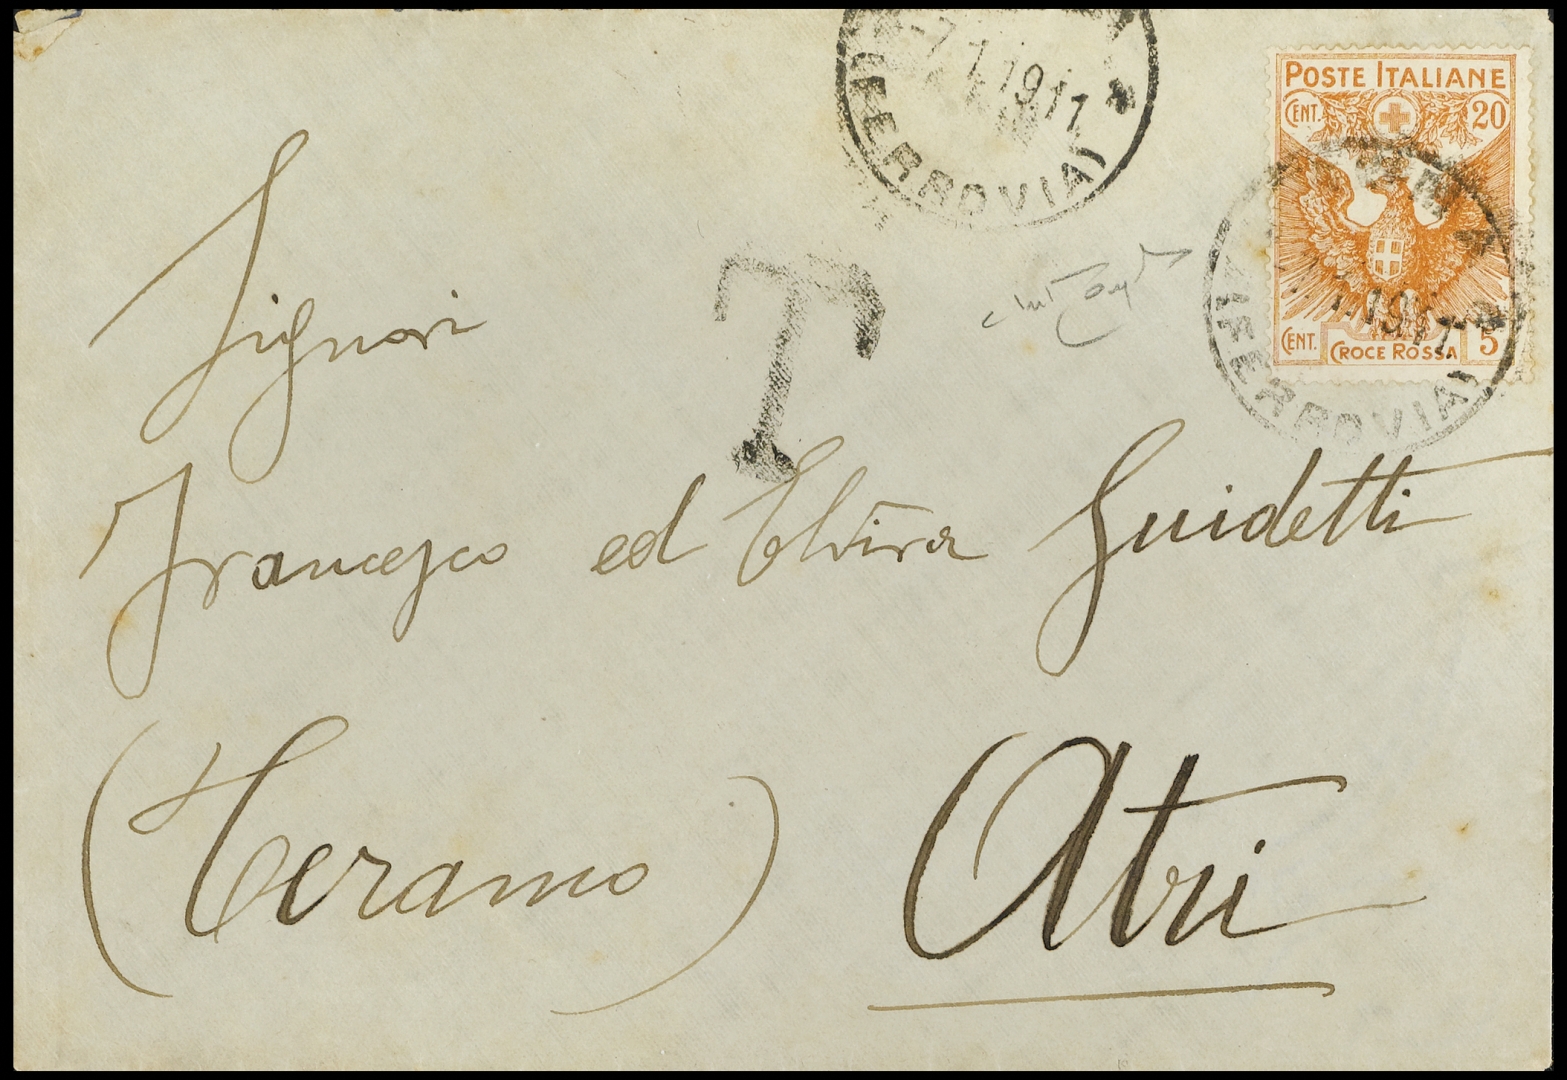 -7.1.1917
(FERROVIA)
POSTE ITALIANE
CENT. 20
CENT. 5
CROCE ROSSA
(FERROVIA)
T
Signori
Francesco ed Elvira Guidetti
(Teramo) Atri